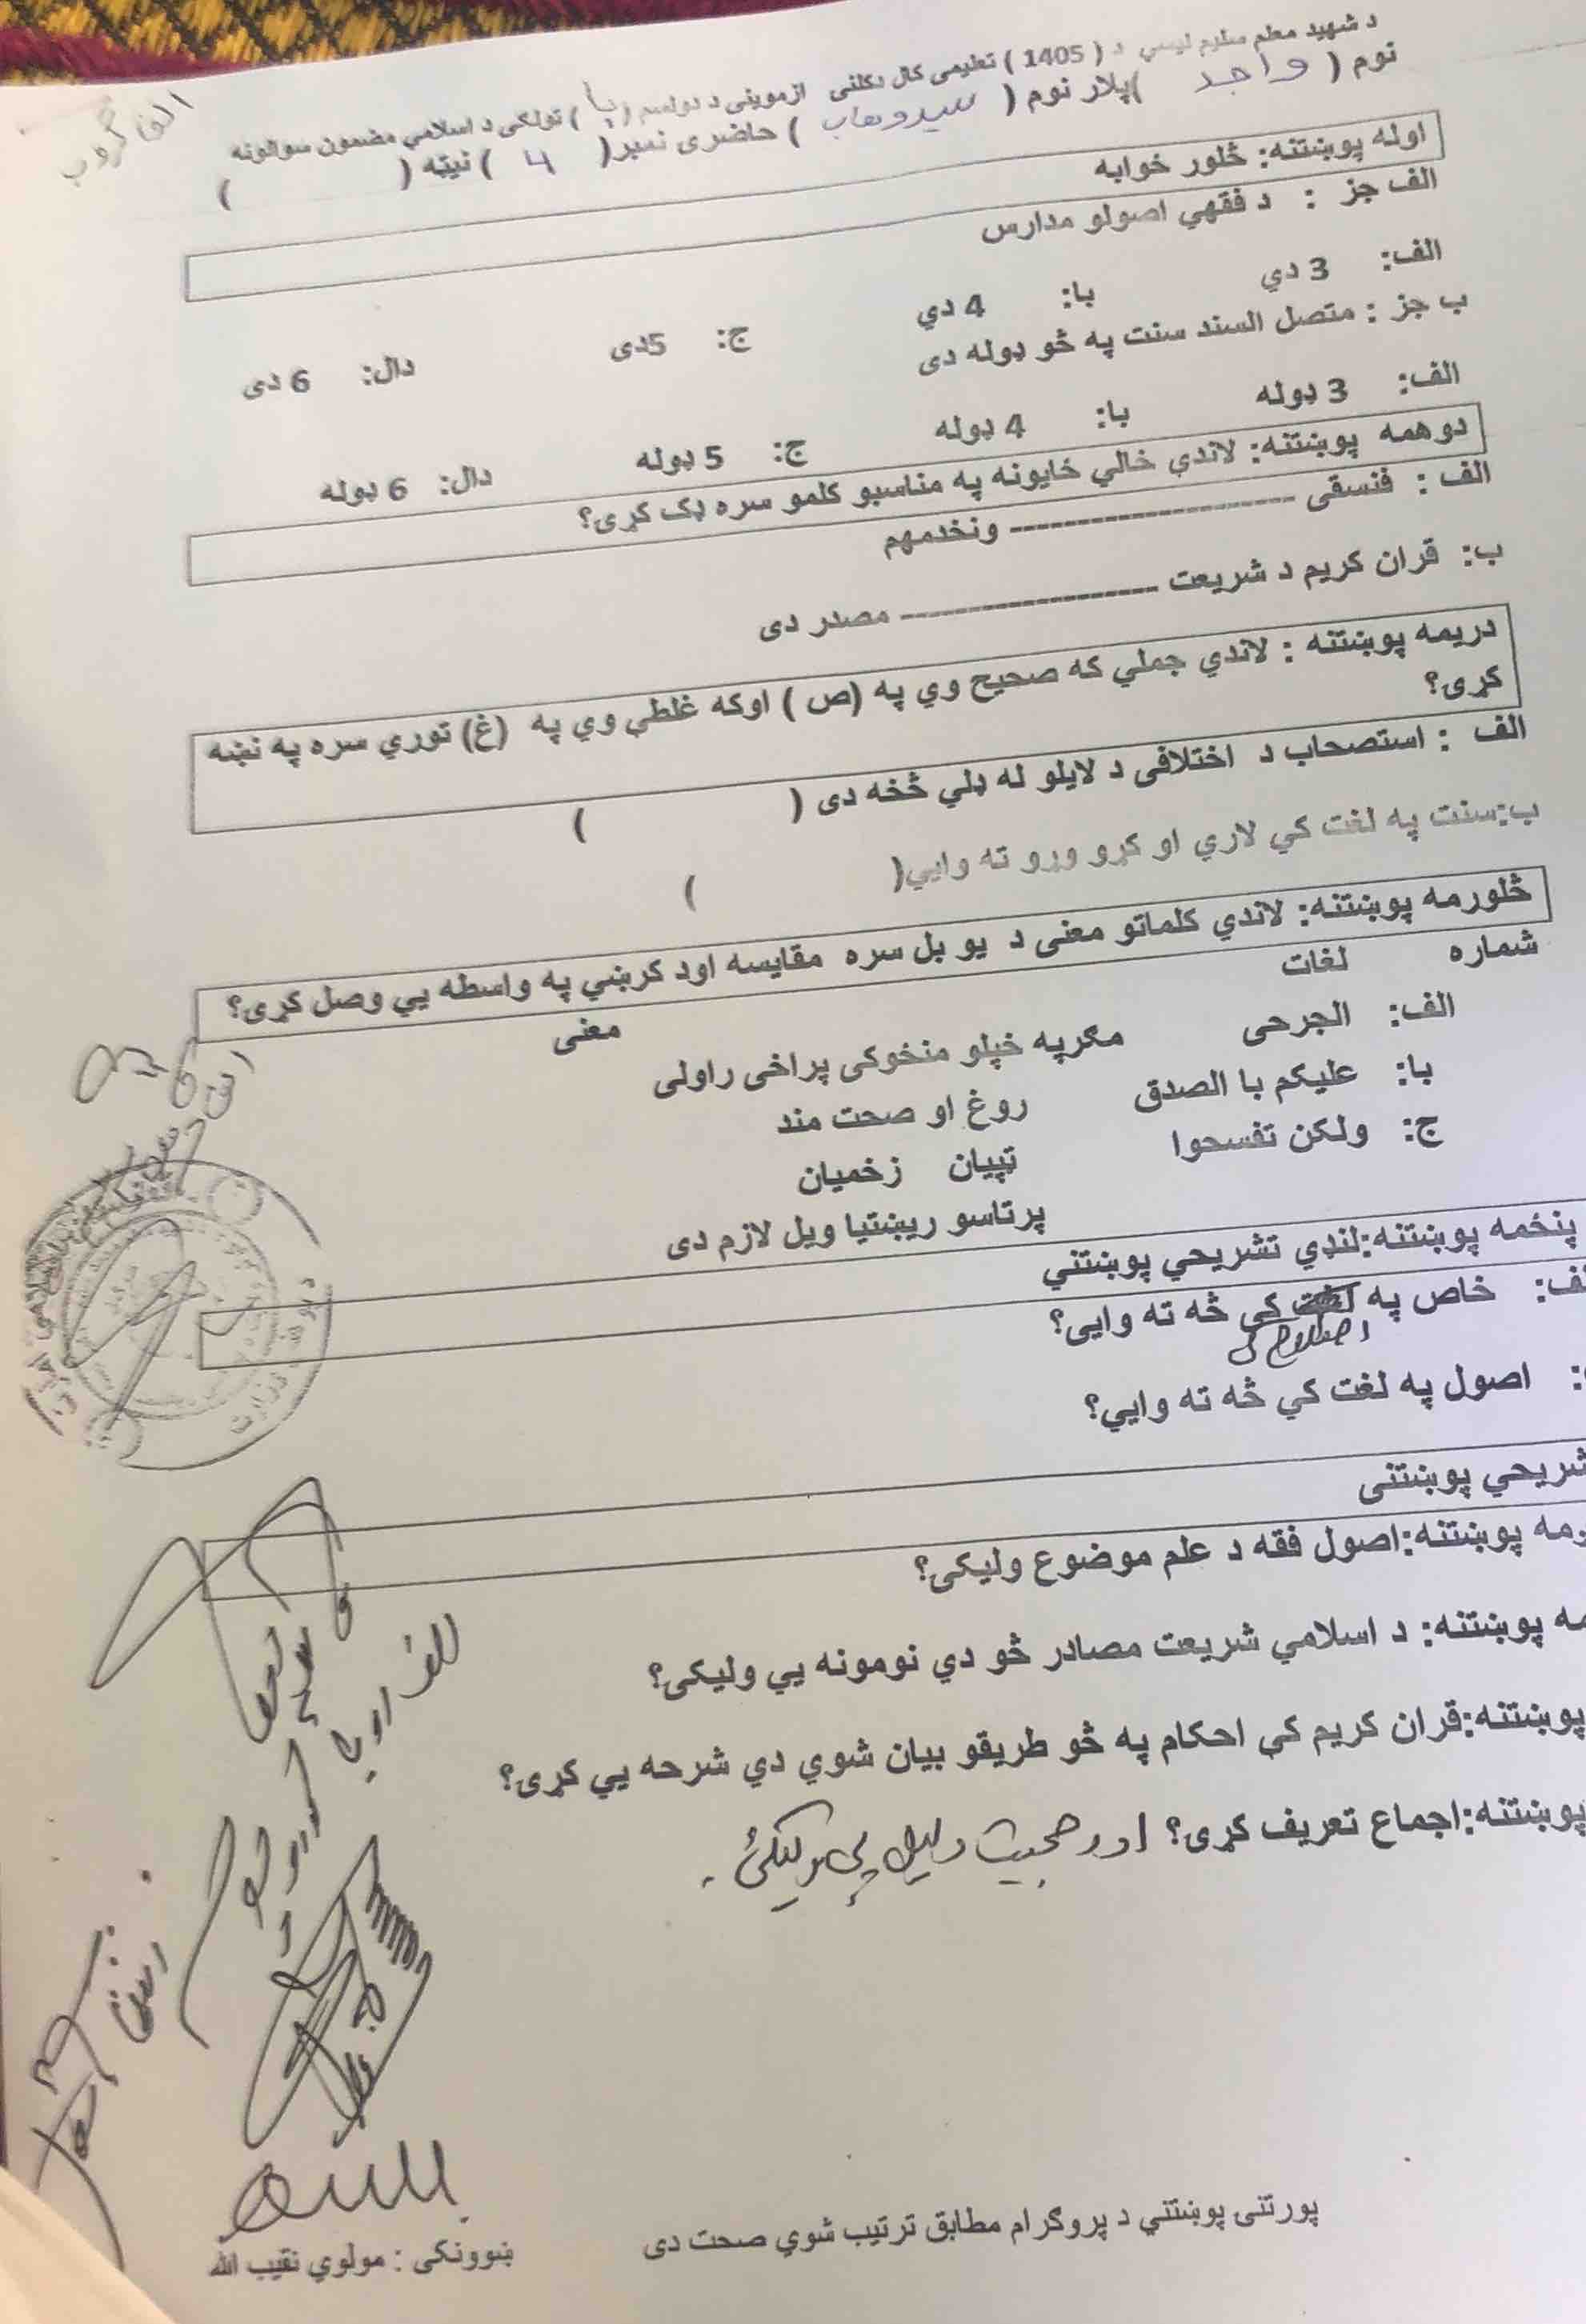 د شهيد معلم سليم ليسې د ( 1405 ) تعليمى کال دکلنى ازموينى د دولسم ( با ) تولګى د اسلامي مضمون سوالونه
نوم ( واجد )پلار نوم ( سيدوهاب ) حاضرى نمبر( 4 ) نيټه ( )
الف ګروپ
اوله پوښتنه: څلور ځوابه
الف جز : د فقهي اصولو مدارس
الف: 3 دي با: 4 دي ج: 5دى دال: 6 دى
ب جز : متصل السند سنت په څو ډوله دى
الف: 3 ډوله با: 4 ډوله ج: 5 ډوله دال: 6 ډوله
دوهمه پوښتنه: لاندې خالي ځايونه په مناسبو کلمو سره ډک کړى؟
الف : فنسقى ---------------------- ونخدمهم
ب: قران کريم د شريعت -------------------- مصدر دى
دريمه پوښتنه : لاندې جملې که صحيح وي په (ص ) اوکه غلطې وي په (غ) توري سره په نښه
کړى؟
الف : استصحاب د اختلافى د لايلو له ډلې څخه دى ( )
ب:سنت په لغت کي لارې او کړو وړو ته وايي( )
څلورمه پوښتنه: لاندې کلماتو معنى د يو بل سره مقايسه اود کرښې په واسطه يې وصل کړى؟
شماره لغات معنى
الف: الجرحى مګرپه خپلو منځوکى پراخى راولى
با: عليکم با الصدق روغ او صحت مند
ج: ولکن تفسحوا ټپيان زخميان
پرتاسو ريښتيا ويل لازم دى
پنځمه پوښتنه:لنډې تشريحي پوښتنې
لف: خاص په لغت کې څه ته وايى؟
اصطلاح کى
: اصول په لغت کې څه ته وايي؟
شريحي پوښتنى
رمه پوښتنه:اصول فقه د علم موضوع وليکى؟
مه پوښتنه: د اسلامي شريعت مصادر څو دي نومونه يې وليکى؟
پوښتنه:قران کريم کې احکام په څو طريقو بيان شوي دي شرحه يې کړى؟
پوښتنه:اجماع تعريف کړى؟ او د حجيت دليل يې وليکئ .
پورتنى پوښتنې د پروګرام مطابق ترتيب شوي صحت دى
ښوونکى : مولوي نقيب الله